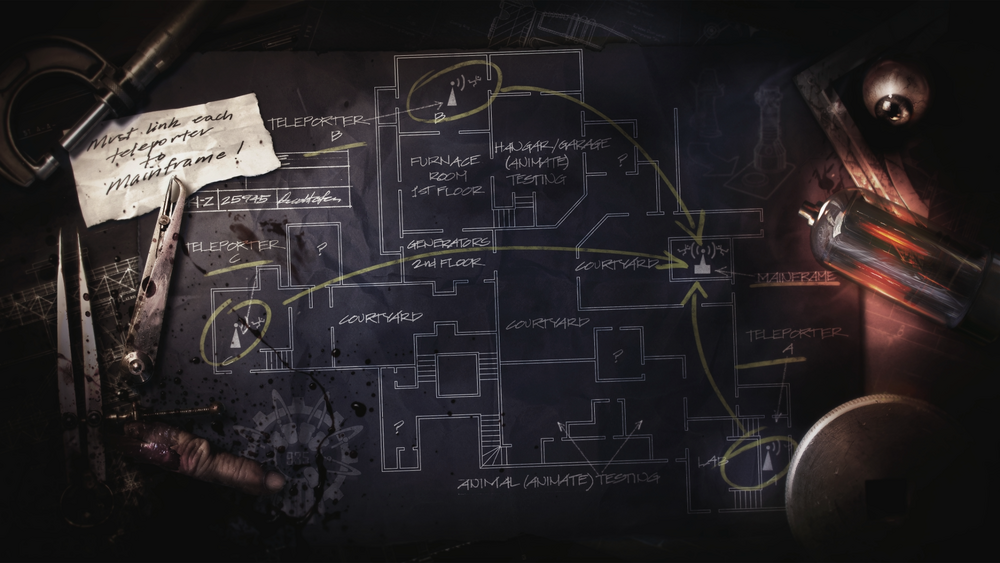 Must link each
teleporter
to
Mainframe!
TELEPORTER
B
B
FURNACE
ROOM
1ST FLOOR
HANGAR/GARAGE
(ANIMATE)
TESTING
?
25945
TELEPORTER
C
?
GENERATORS
2nd FLOOR
COURTYARD
MAINFRAME
C
COURTYARD
COURTYARD
?
TELEPORTER
A
?
LAB
ANIMAL (ANIMATE) TESTING
935